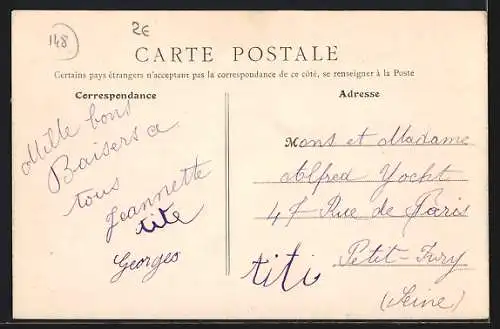 148
2E
CARTE POSTALE
Certains pays étrangers n'acceptant pas la correspondance de ce côté, se renseigner à la Poste
Correspondance
Mille bons
Baisers a
tous
Jeannette
tite
Georges
Adresse
Mons et Madame
Alfred Yocht
47 Rue de Paris
Petit-Ivry
(Seine)
titi